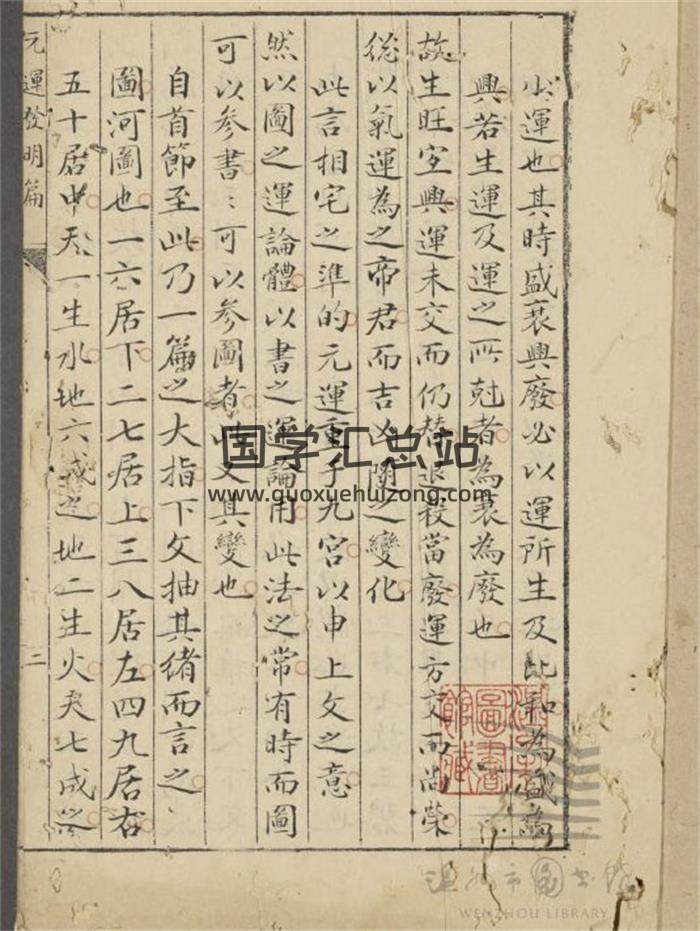 少運也其時盛衰興廢必以運所生及比和為盛為
興若生運及運之所尅者為衰為廢也
故生旺宜興運未交而仍替退殺當廢運方交而尚榮
總以氣運為之帝君而吉凶隨之變化
此言相宅之準的元運重乎九宮以申上文之意
然以圖之運論體以書之運論用此法之常有時而圖
可以參書〻可以參圖者此又其變也
自首節至此乃一篇之大指下文抽其緒而言之
圖河圖也一六居下二七居上三八居左四九居右
五十居中天一生水地六成之地二生火天七成之
元運發明篇
二
国学汇总站
www.guoxuehuizong.com
溫州市圖書館
WENZHOU LIBRARY